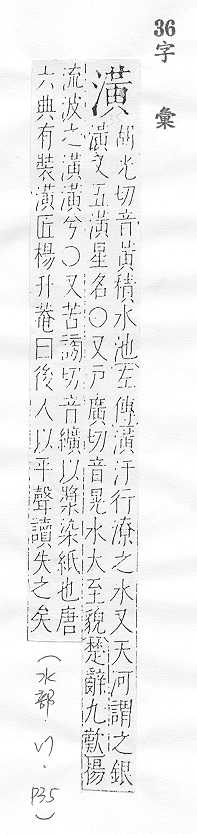 36字彙
潢
胡光切音黃積水池左傳潢汙行潦之水又天河謂之銀
潢又五潢星名○又戶廣切音晃水大至貌楚辭九歎揚
流波之潢潢兮○又苦謗切音纊以漿染紙也唐
六典有裝潢匠楊升菴曰後人以平聲讀失之矣
(水部· · P35)